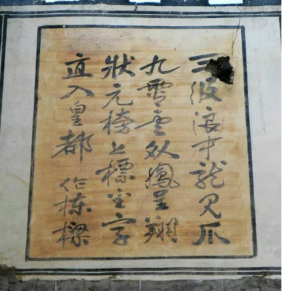 三級浪中龍見爪
九霄雲外鳳呈翔
狀元榜上標金字
直入皇都作棟樑